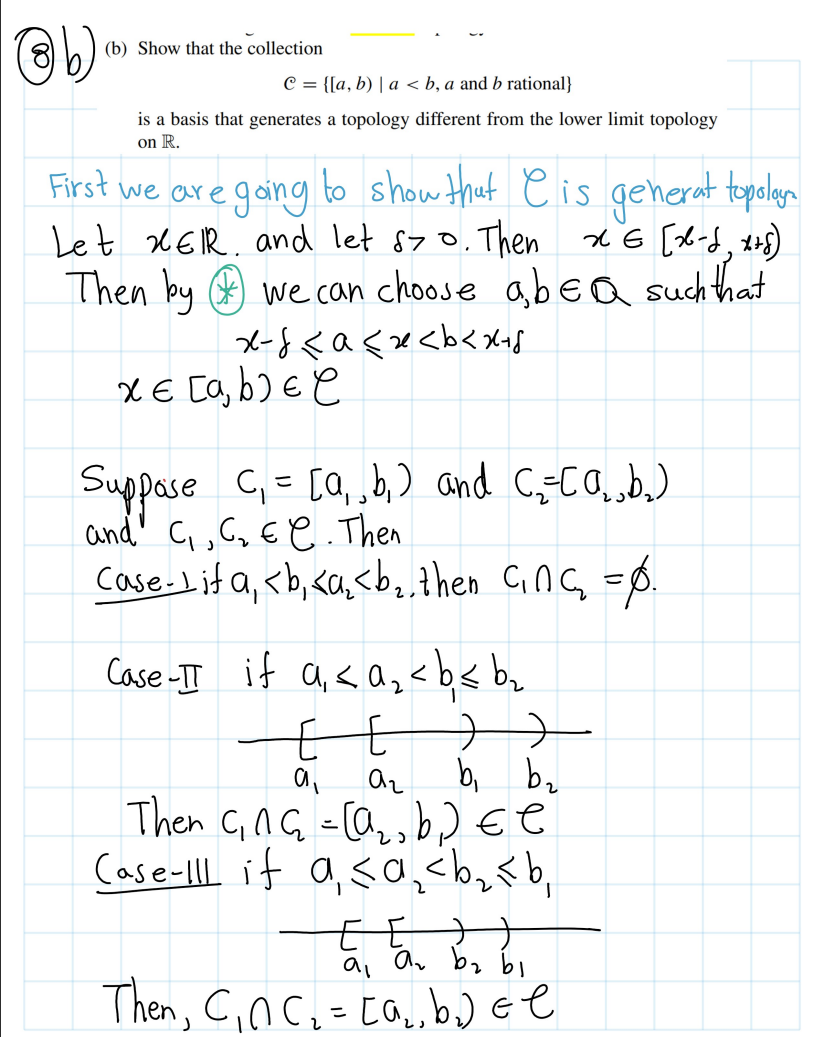 8b)
(b) Show that the collection
𝒞 = {[a, b) | a < b, a and b rational}
is a basis that generates a topology different from the lower limit topology
on ℝ.
First we are going to show that 𝒞 is generat topology
Let x∈ℝ. and let δ>0. Then x ∈ [x-δ, x+δ)
Then by ⊛ we can choose a,b∈ℚ such that
x-δ ⩽ a ⩽ x < b < x+δ
x ∈ [a,b) ∈ 𝒞
Suppose C₁ = [a₁, b₁) and C₂=[a₂, b₂)
and C₁, C₂ ∈ 𝒞. Then
Case-1 if a₁<b₁⩽a₂<b₂, then C₁∩C₂ = ∅.
Case-II if a₁ ⩽ a₂ < b₁ ⩽ b₂
[ [ ) )
a₁ a₂ b₁ b₂
Then C₁∩C₂ = [a₂, b₁) ∈ 𝒞
Case-III if a₁ ⩽ a₂ < b₂ ⩽ b₁
[ [ ) )
a₁ a₂ b₂ b₁
Then, C₁∩C₂ = [a₂, b₂) ∈ 𝒞